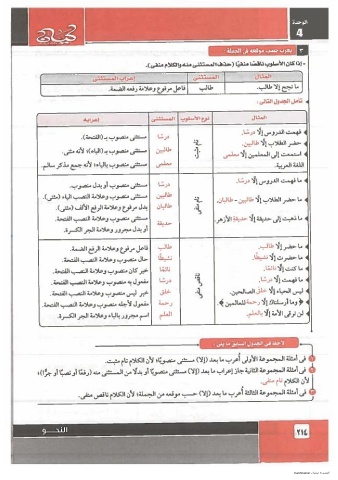 الوحدة
4
٣ يعرب حسب موقعه في الجملة
- إذا كان الأسلوب ناقصًا منفيًّا (حذف المستثنى منه والكلام منفى).
المثال المستثنى إعراب المستثنى
ما نجح إلا طالب. طالب فاعل مرفوع وعلامة رفعه الضمة.
تأمل الجدول التالى:
المثال نوع الأسلوب المستثنى الإعراب
فهمت الدروس إلا درسًا. تام مثبت درسًا مستثنى منصوب بـ (الفتحة).
حضر الطلاب إلا طالبين. طالبين مستثنى منصوب بـ (الياء)؛ لأنه مثنى.
استمعت إلى المعلمين إلا معلمى اللغة العربية. معلمى مستثنى منصوب بـ (الياء)؛ لأنه جمع مذكر سالم.
ما فهمت الدروس إلا درسًا. تام منفى درسًا مستثنى منصوب أو بدل منصوب.
ما حضر الطلاب إلا طالبين - طالبان. طالبين مستثنى منصوب وعلامة النصب الياء (مثنى).
طالبان بدل مرفوع وعلامة الرفع الألف (مثنى).
ما ذهبت إلى حديقة إلا حديقة الأزهر. حديقة مستثنى منصوب وعلامة النصب الفتحة.
أو بدل مجرور وعلامة الجر الكسرة.
ما حضر إلا طالب. ناقص منفى طالب فاعل مرفوع وعلامة الرفع الضمة.
ما حضرت إلا نشيطًا. نشيطًا حال منصوب وعلامة النصب الفتحة.
ما كنت إلا نائمًا. خبر كان منصوب وعلامة النصب الفتحة.
ما فهمت إلا درسًا. درسًا مفعول به منصوب وعلامة النصب الفتحة.
ليس الحياء إلا خلق الصالحين. خلق خبر ليس منصوب وعلامة النصب الفتحة.
﴿ وما أرسلناك إلا رحمة للعالمين ﴾ رحمة مفعول لأجله منصوب وعلامة النصب الفتحة.
لن ترقى الأمة إلا بالعلم. العلم اسم مجرور بالباء وعلامة الجر الكسرة.
١ فى أمثلة المجموعة الأولى أعرب ما بعد (إلا) مستثنى منصوبًا؛ لأن الكلام تام مثبت.
٢ فى أمثلة المجموعة الثانية جاز إعراب ما بعد (إلا) مستثنى منصوبًا أو بدلًا من المستثنى منه (رفعًا أو نصبًا أو جرًّا)؛
لأن الكلام تام منفى.
٣ فى أمثلة المجموعة الثالثة أعرب ما بعد (إلا) حسب موقعه من الجملة؛ لأن الكلام ناقص منفى.
النحو
٢١٤